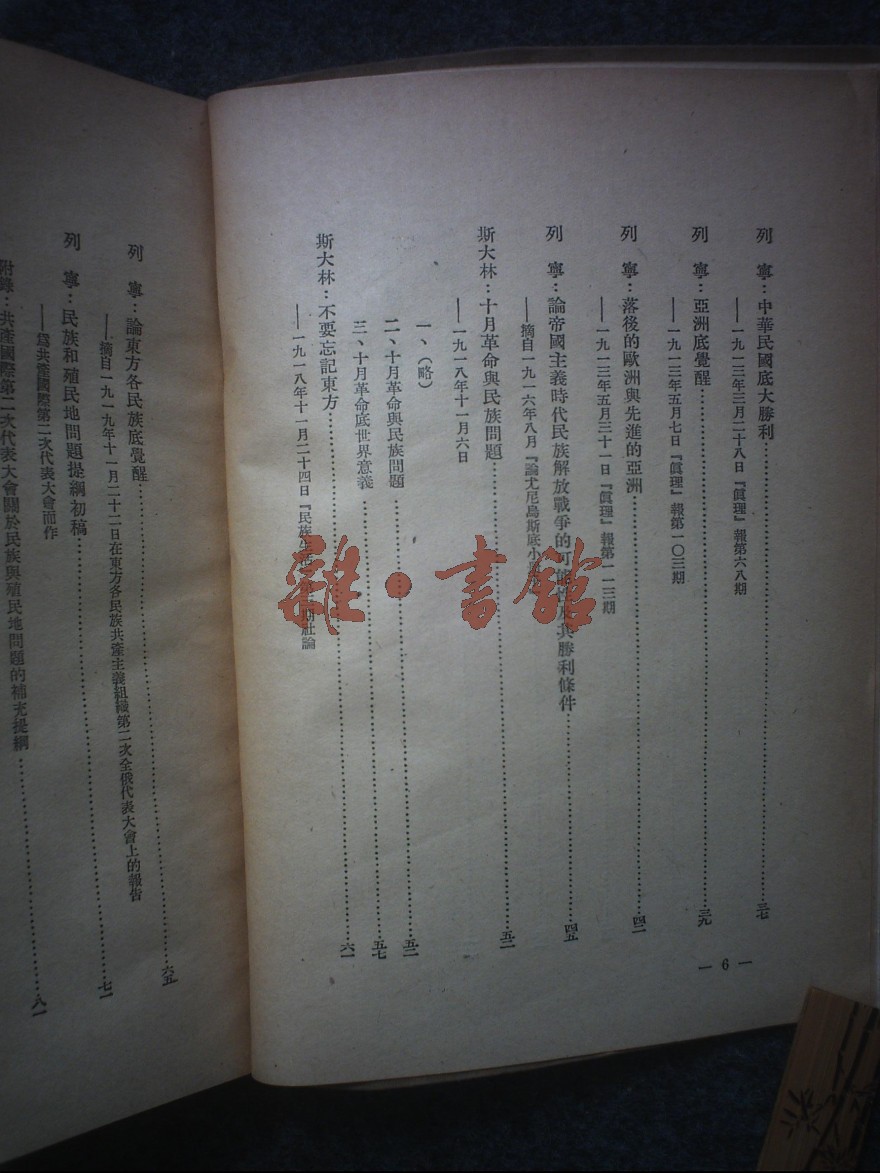 列　寧：中華民國底大勝利……三七
——一九一三年三月二十八日『眞理』報第六八期
列　寧：亞洲底覺醒……三九
——一九一三年五月七日『眞理』報第一〇三期
列　寧：落後的歐洲與先進的亞洲……四二
——一九一三年五月三十一日『眞理』報第一一三期
列　寧：論帝國主義時代民族解放戰爭的可能性及其勝利條件……四五
——摘自一九一六年八月『論尤尼烏斯底小
斯大林：十月革命與民族問題……五二
——一九一八年十一月六日
一、（略）
二、十月革命與民族問題……五二
三、十月革命底世界意義……五七
斯大林：不要忘記東方……六一
——一九一八年十一月二十四日『民族生活 期社論
— 6 —
列　寧：論東方各民族底覺醒……六五
——摘自一九一九年十一月二十二日在東方各民族共產主義組織第二次全俄代表大會上的報告
列　寧：民族和殖民地問題提綱初稿……七一
——爲共產國際第二次代表大會而作
附錄：共產國際第二次代表大會關於民族與殖民地問題的補充提綱……八一
雜·書館